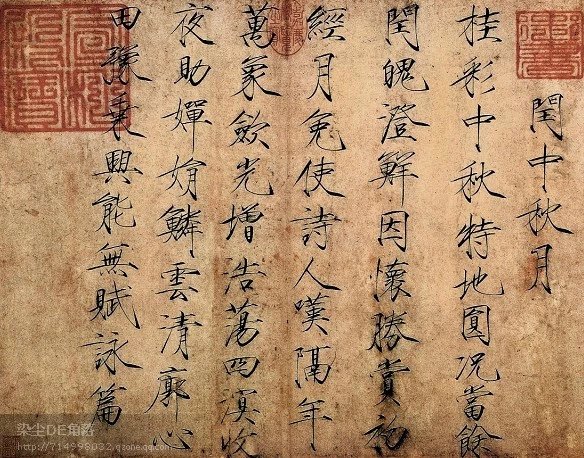 閏中秋月
桂彩中秋特地圓况當餘
閏魄澄鮮因懷勝賞初
經月免使詩人嘆隔年
萬象歛光增浩蕩四溟收
夜助嬋娟鱗雲清廓心
田豫乘興能無賦詠篇
染尘DE角落
http://714998032.qzone.qq.com/